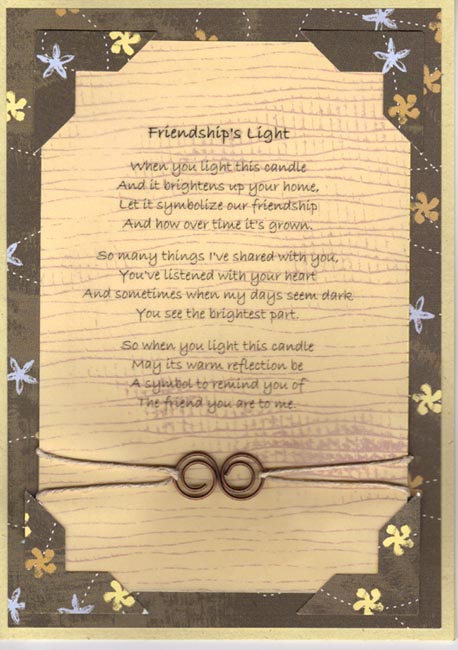 Friendship's Light
When you light this candle
And it brightens up your home,
Let it symbolize our friendship
And how over time it's grown.
So many things I've shared with you,
You've listened with your heart
And sometimes when my days seem dark
You see the brightest part.
So when you light this candle
May its warm reflection be
A symbol to remind you of
The friend you are to me.